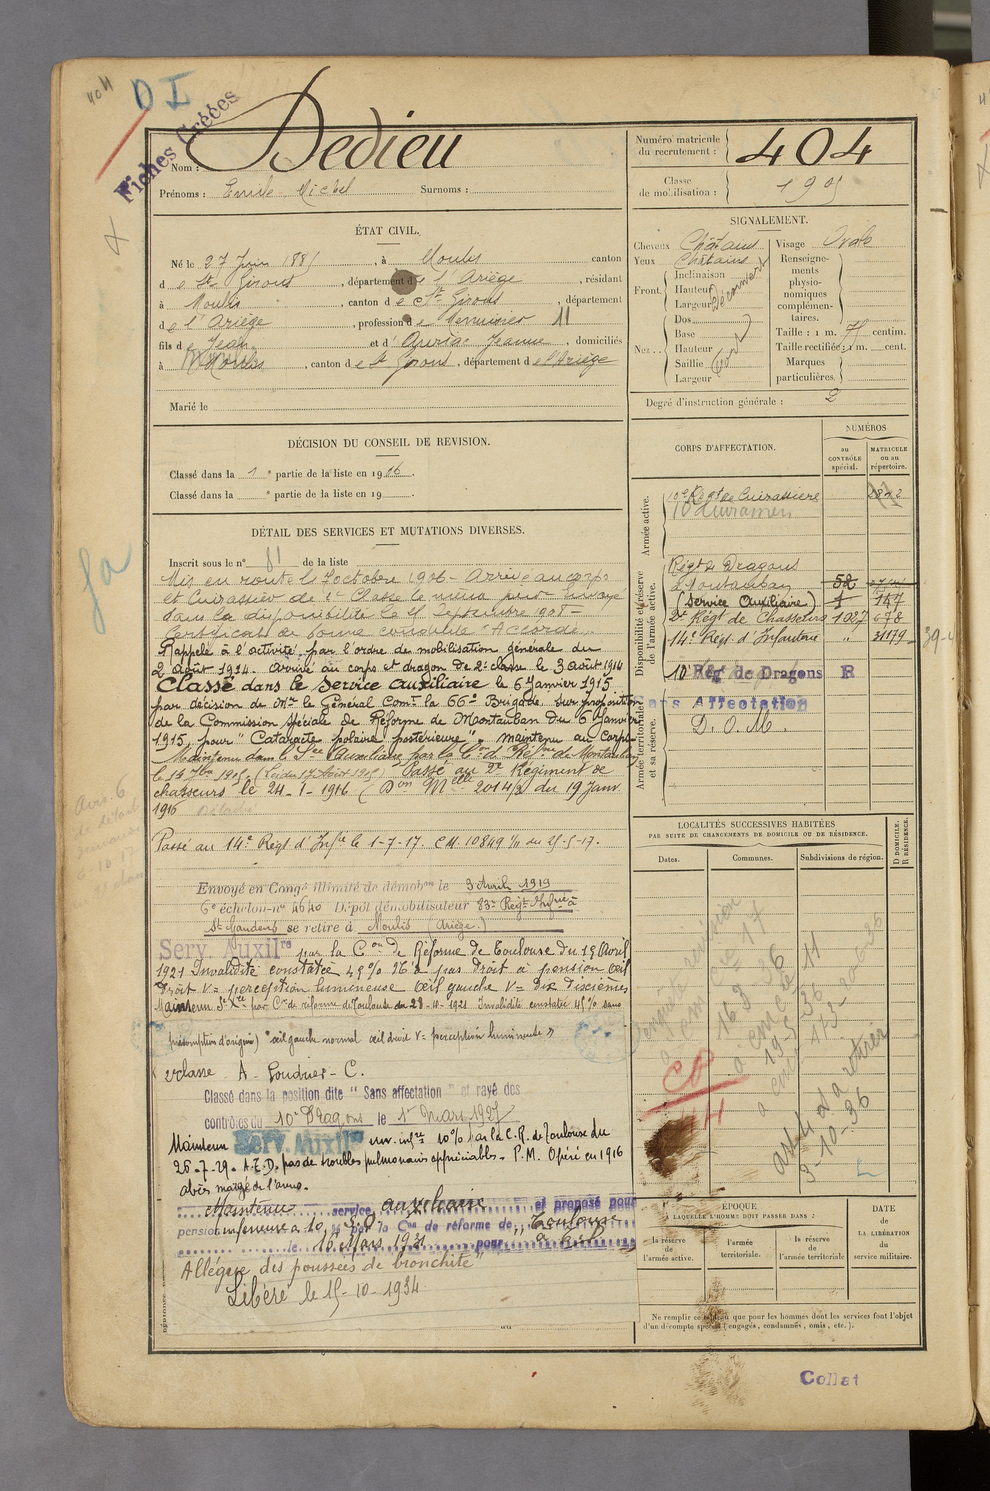 404
D I
Fiches Créées
Nom : Dedieu
Prénoms : Emile Michel Surnoms :
Numéro matricule du recrutement : 404
Classe de mobilisation : 1905
ÉTAT CIVIL.
Né le 27 Juin 1885, à Moulis canton
de St Girons, département de l'Ariège, résidant
à Moulis, canton de St Girons, département
de l'Ariège, profession de Menuisier 11
fils de Jean et d'Auriac Jeanne, domiciliés
à Moulis, canton de St Girons, département de l'Ariège
Marié le
SIGNALEMENT.
Cheveux Châtains
Yeux Châtains
Front. Inclinaison
Hauteur
Largeur
découvert
Nez... Dos
Base
Hauteur
Saillie
Largeur
fort
Visage Ovale
Renseignements physionomiques complémentaires.
Taille : 1 m. 75 centim.
Taille rectifiée : 1 m. cent.
Marques particulières.
Degré d'instruction générale : 2
DÉCISION DU CONSEIL DE REVISION.
Classé dans la 1e partie de la liste en 1906.
Classé dans la e partie de la liste en 19
DÉTAIL DES SERVICES ET MUTATIONS DIVERSES.
Inscrit sous le n° 81 de la liste
Mis en route le 7 octobre 1906 - Arrivé au corps
et Cuirassier de 2e Classe le même jour - Envoyé
dans la disponibilité le 25 Septembre 1908 =
Certificat de bonne conduite "Accordé"
Rappelé à l'activité par l'ordre de mobilisation générale du
2 Août 1914. Arrivé au corps et dragon de 2e classe le 3 août 1914
Classé dans le Service auxiliaire le 6 Janvier 1915
par décision de Mr le Général Comt la 66e Brigade sur proposition
de la Commission spéciale de Réforme de Montauban du 6 Janvier
1915 pour "Cataracte polaire postérieure". maintenu au Corps
Maintenu dans le Sce Auxiliaire par la Con de Réfme de Montauban
le 15 7bre 1915. (Loi du 17 Août 1915) Passé au 2e Régiment de
chasseurs le 24-1-1916 (Don Melle 2014/2 du 19 Janv.
1916
Passé au 14e Régt d'Infie le 1-7-17. C.M. 10849 1/11 du 25-5-17.
Envoyé en Congé illimité de démobon le 3 Avril 1919
6e échelon-no 4640 Dépôt démobilisateur 83e Régt Infie à
St Gaudens se retire à Moulis (Ariège.)
Serv. Auxilre par la Con de Réforme de Toulouse du 15 Avril
1921 Invalidité constatée 45% N'a pas droit à pension Œil
droit V = perception lumineuse Œil gauche V = dix dixièmes
Maintenu Sce Xre par Con de réforme de Toulouse du 28-4-1921 Invalidité constatée 45% sans
présomption d'origine) "œil gauche normal œil droit V = perception lumineuse"
Classé dans la position dite "Sans affectation" et rayé des
contrôles du 10e Dragons le 1er Mars 1927
Maintenu Serv. Auxilre inv. infre 10% par la C.R. de Toulouse du
26-7-29. A.T.D. pas de troubles pulmonaires appréciables - P.M. Opéré en 1916
abcès marge de l'anus.
Maintenu service auxiliaire et proposé pour
pension inférieure à 10 % S.O. par la Con de réforme de Toulouse
le 16 Mars 1931 pour
Allègue des poussées de bronchite"
Libéré le 15-10-1934
CORPS D'AFFECTATION.
NUMÉROS
au CONTRÔLE spécial.
MATRICULE ou au répertoire.
Armée active.
10e Régt de Cuirassiers 2842
10 Cuirassiers
Disponibilité et réserve de l'armée active.
Régt de Dragons
à Montauban 52
(Service Auxiliaire) 1 147
2e Régt de Chasseurs 1087 678
14e Régt d'Infanterie " 21179
10e Rég de Dragons R
Armée territoriale et sa réserve.
Sans Affectation
D. O. M.
LOCALITÉS SUCCESSIVES HABITÉES
PAR SUITE DE CHANGEMENTS DE DOMICILE OU DE RÉSIDENCE.
Dates. Communes. Subdivisions de région.
D DOMICILE.
R RÉSIDENCE.
3-10-36
ÉPOQUE
À LAQUELLE L'HOMME DOIT PASSER DANS :
la réserve de l'armée active. l'armée territoriale. la réserve de l'armée territoriale
DATE DE LA LIBÉRATION du service militaire.
Ne remplir ce que pour les hommes dont les services font l'objet
d'un décompte spécial (engagés, condamnés, omis, etc.).
Collat